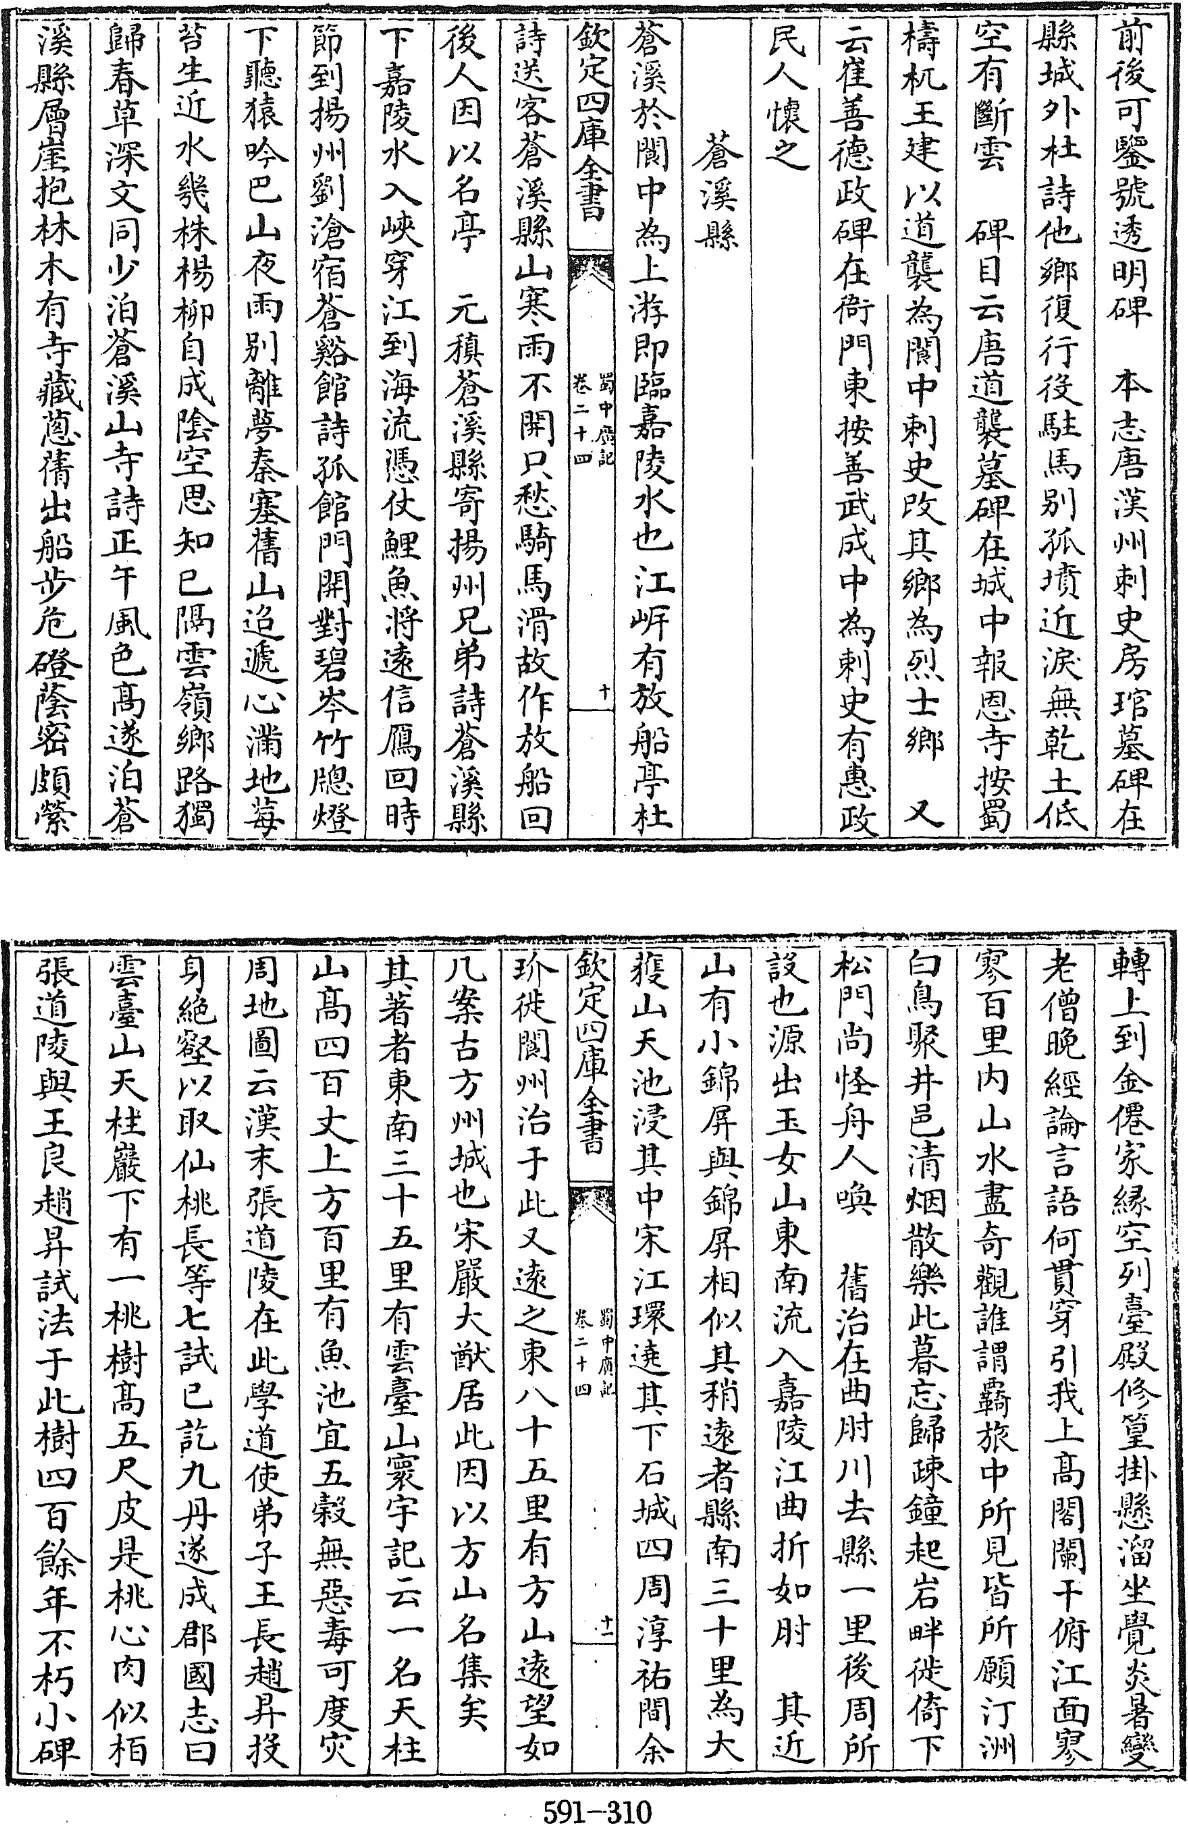 前後可鑒號透明碑　本志唐漢州刺史房琯墓碑在
縣城外杜詩他鄉復行役駐馬别孤墳近淚無乾土低
空有斷雲　碑目云唐道襲墓碑在城中報恩寺按蜀
檮杌王建以道襲為閬中刺史改其鄉為烈士鄉　又
云崔善德政碑在衙門東按善武成中為刺史有惠政
民人懷之
蒼溪縣
蒼溪於閬中為上游即臨嘉陵水也江岸有放船亭杜
欽定四庫全書
蜀中廣記
卷二十四
十
詩送客蒼溪縣山寒雨不開只愁騎馬滑故作放船回
後人因以名亭　元稹蒼溪縣寄揚州兄弟詩蒼溪縣
下嘉陵水入峽穿江到海流憑仗鯉魚將遠信鴈回時
節到揚州劉滄宿蒼谿館詩孤館門開對碧岑竹牕燈
下聽猿吟巴山夜雨别離夢秦塞舊山迢遞心滿地莓
苔生近水幾株楊柳自成陰空思知己隔雲嶺鄉路獨
歸春草深文同少泊蒼溪山寺詩正午風色髙遂泊蒼
溪縣層崖抱林木有寺藏蔥蒨出船步危磴蔭密頗縈
轉上到金僊家縁空列臺殿修篁掛懸溜坐覺炎暑變
老僧晚經論言語何貫穿引我上髙閣闌干俯江面寥
寥百里内山水盡奇觀誰謂覊旅中所見皆所願汀洲
白鳥聚井邑清烟散樂此暮忘歸疎鐘起岩畔徙倚下
松門尚怪舟人喚　舊治在曲肘川去縣一里後周所
設也源出玉女山東南流入嘉陵江曲折如肘　其近
山有小錦屏與錦屏相似其稍遠者縣南三十里為大
蒦山天池浸其中宋江環遶其下石城四周淳祐間余
欽定四庫全書
蜀中廣記
卷二十四
十一
玠徙閬州治于此又遠之東八十五里有方山遠望如
几案古方州城也宋嚴大猷居此因以方山名集矣
其著者東南三十五里有雲臺山寰宇記云一名天柱
山髙四百丈上方百里有魚池宜五榖無惡毒可度災
周地圖云漢末張道陵在此學道使弟子王長趙昇投
身絶壑以取仙桃長等七試已訖九丹遂成郡國志曰
雲臺山天柱巖下有一桃樹髙五尺皮是桃心肉似栢
張道陵與王良趙昇試法于此樹四百餘年不朽小碑
591-310